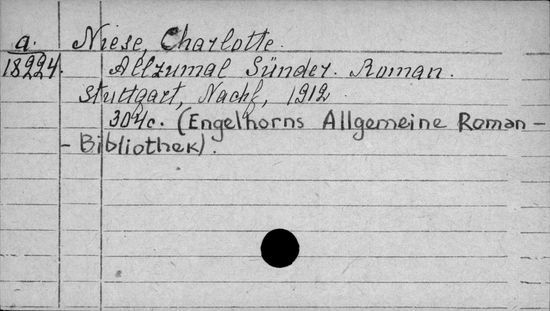 a. Niese, Charlotte.
18224. Allzumal Sünder. Roman.
Stuttgart, Nachf, 1912
304c. (Engelhorns Allgemeine Roman-
-Bibliothek).